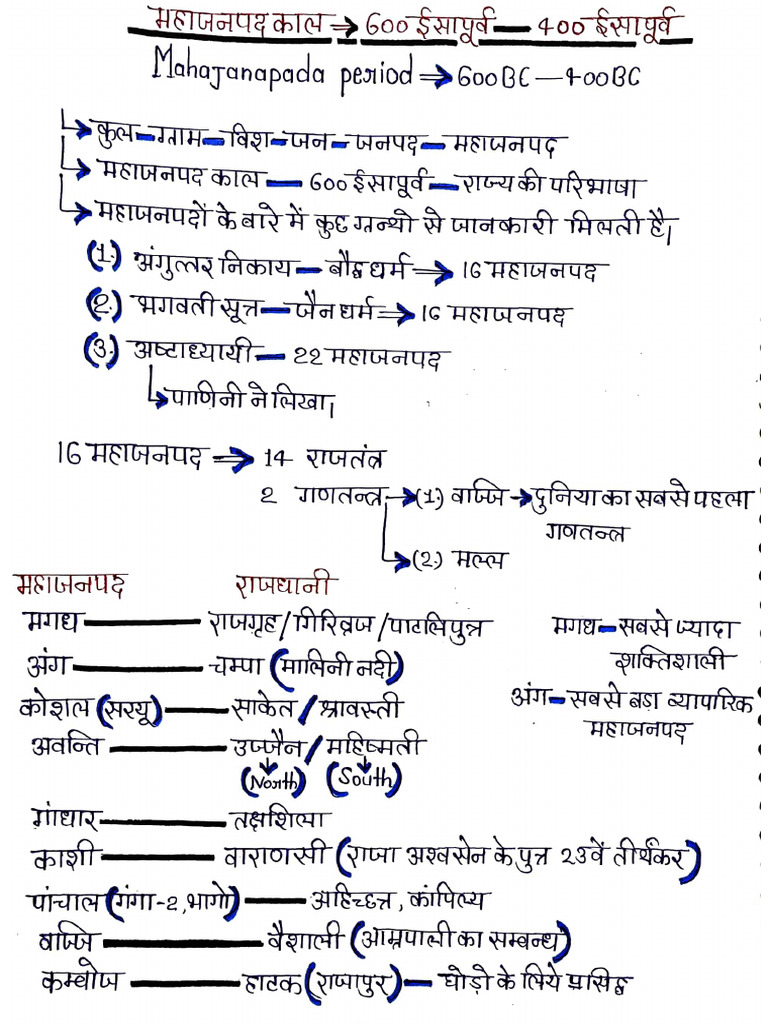 महाजनपद काल → 600 ईसापूर्व — 400 ईसापूर्व
Mahajanapada period → 600BC — 400BC
↳ कुल — ग्राम — विश — जन — जनपद — महाजनपद
↳ महाजनपद काल — 600 ईसापूर्व — राज्य की परिभाषा
↳ महाजनपदों के बारे में कुछ ग्रन्थो से जानकारी मिलती है।
(1.) अंगुत्तर निकाय — बौद्ध धर्म → 16 महाजनपद
(2.) भगवती सूत्र — जैन धर्म → 16 महाजनपद
(3.) अष्टाध्यायी — 22 महाजनपद
↳ पाणिनी ने लिखा।
16 महाजनपद → 14 राजतंत्र
2 गणतन्त्र → (1.) वाज्जि → दुनिया का सबसे पहला
गणतन्त्र
↳ (2.) मल्ल
महाजनपद राजधानी
मगध — राजगृह/गिरिव्रज/पाटलिपुत्र मगध — सबसे ज्यादा
शक्तिशाली
अंग — चम्पा (मालिनी नदी)
कोशल (सरयू) — साकेत / श्रावस्ती अंग — सबसे बडा व्यापारिक
महाजनपद
अवन्ति — उज्जैन / महिष्मती
(North) (South)
गांधार — तक्षशिला
काशी — वाराणसी (राजा अश्वसेन के पुत्र 23वें तीर्थंकर)
पांचाल (गंगा-2, भागो) — अहिच्छत्र, कांपिल्य
वाज्जि — वैशाली (आम्रपाली का सम्बन्ध)
कम्वोज — हाटक (राजापुर) — घोड़ो के लिये प्रसिद्ध